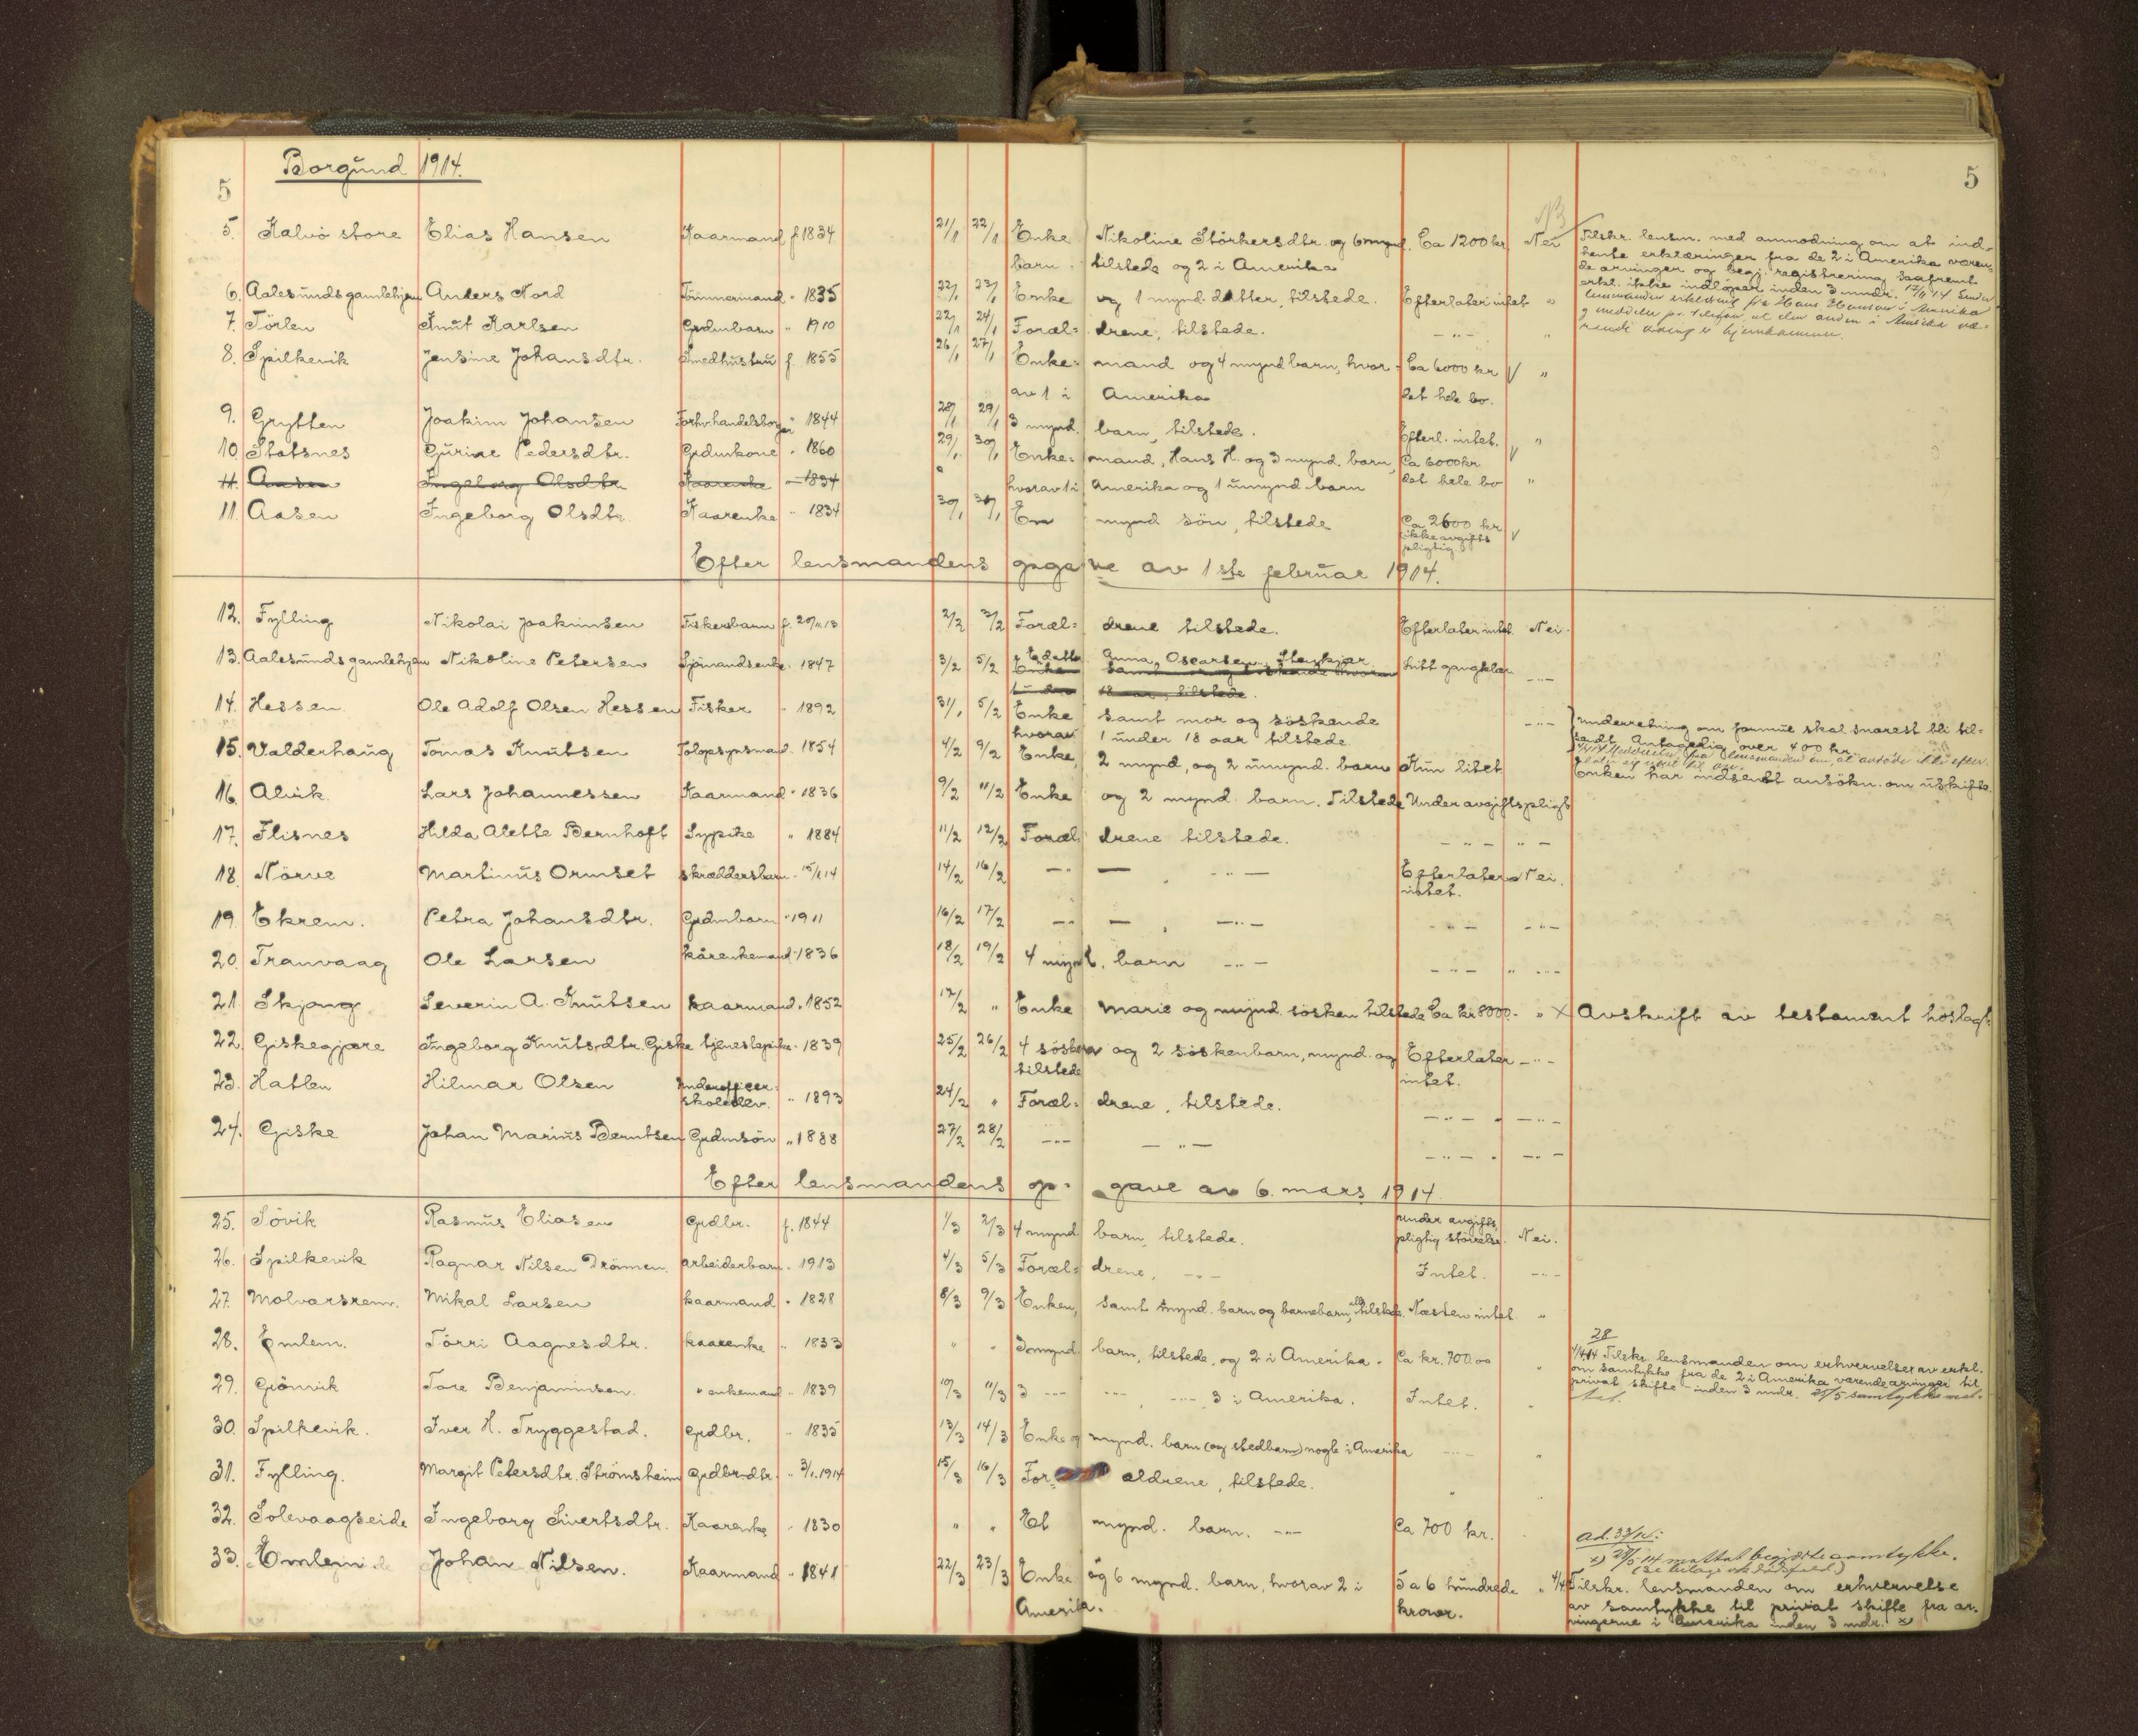 Borgund 1914.
5
5
5. Kalvö store Elias Hansen Kaarmand f 1834 21/1 22/1 Enke Nikoline Störkersdtr. og 6 mynd. Ca 1200 kr. Nei
barn tilstede og 2 i Amerika
Tilskr. lensm. med anmodning om at ind-
hente erklæringer fra de 2 i Amerika væren-
de arvinger og begj. registrering saafremt
erkl. ikke indlöper inden 3 mndr. 17/4 14
6. Aalesunds gamlehjem Anders Nord Tömmermand " 1835 22/1 23/1 Enke og 1 mynd. datter, tilstede. Efterlater intet "
7. Törlen Knut Karlsen Grdmbarn " 1910 22/1 24/1 Foræl= drene, tilstede. - " - "
8. Spilkevik Jensine Johansdtr. Smedhustru f. 1855 26/1 27/1 Enke= mand og 4 mynd barn, hvor- Ca 6000 kr V "
av 1 i Amerika det hele bo.
9. Grytten Joakim Johansen Forhv. handelsborger " 1844 28/1 29/1 3 mynd. barn, tilstede. Efterl. intet. "
10 Statsnes Gurine Pedersdtr. Grdmkone " 1860 29/1 30/1 Enke= mand, Hans H. og 3 mynd. barn, Ca 6000 kr V
hvorav 1 i Amerika og 1 umynd barn det hele bo "
11. Aasen Ingeborg Olsdtr Kaarenke " 1834
11. Aasen Ingeborg Olsdtr. Kaarenke " 1834 30/1 30/1 En mynd sön, tilstede Ca 2600 kr V
ikke avgifts
pligtig
Efter lensmandens opgave av 1ste februar 1914.
12. Fylling Nikolai Joakimsen Fiskerbarn f. 20/11 13 2/2 3/2 Foræl= drene tilstede. Efterlater intet. Nei.
13. Aalesunds gamlehjem Nikoline Petersen Sjömandsenke " 1847 3/2 5/2 1 datter Anna Oscarsen, Stenkjær Litt gangklær - " -
14. Hessen Ole Adolf Olsen Hessen Fisker " 1892 31/1 5/2 Enke samt mor og söskende - " -
hvorav 1 under 18 aar tilstede.
Underretning om formue skal snarest bli til=
sendt. Antagelig over 400 kr.
15. Valderhaug Tomas Knutsen Tolopsynsmand " 1854 4/2 9/2 Enke, 2 mynd, og 2 umynd. barn Kun litet
Enken har indsendt ansökn. om uskifte.
16. Alvik Lars Johannessen Kaarmand " 1836 9/2 11/2 Enke og 2 mynd. barn. Tilstede Under avgiftspligt
17. Flisnes Hilda Alette Bernhoft Sypike " 1884 11/2 12/2 Foræl= drene tilstede. - " - " -
18. Nörve Martinus Ormset skræddersbarn " 15/1 14 14/2 16/2 - " - - " - Efterlater Nei.
intet.
19. Ekrem. Petra Johansdtr. Grdmbarn " 1911 16/2 17/2 - " - - " - - " - - " -
20. Tranvaag Ole Larsen kårenkemand " 1836 18/2 19/2 4 mynd. barn - " - - " - " - " -
21. Skjong Severin A. Knutsen kaarmand " 1852 17/2 " Enke Marie og mynd. sösken tilstede Ca kr 8000.- " X Avskrift av testament hoslagt.
22. Giskegjære Ingeborg Knutsdtr. Giske tjenestepike " 1839 25/2 26/2 4 sösken og 2 söskenbarn, mynd. og Efterlater - " -
tilstede intet.
23. Hatlen Hilmar Olsen Underofficer
skoleelev. " 1893 24/2 " Foræl= drene, tilstede. - " - " - " -
24. Giske Johan Marius Berntsen Grdmsön " 1888 27/2 28/2 - " - - " - - " - " - " -
Efter lensmandens op= gave av 6. mars 1914.
25. Sövik Rasmus Eliasen Grdbr. f. 1844 1/3 2/3 4 mynd. barn, tilstede. Under avgifts,
pligtig störrelse. Nei.
26. Spilkevik Ragnar Nilsen Drönnen arbeiderbarn " 1913 4/3 5/3 Foræl= drene, - " - Intet. - " -
27. Molværsrem. Mikal Larsen kaarmand " 1828 8/3 9/3 Enken, samt mynd. barn og barnebarn, alle tilstede. Næsten intet "
28. Emlem. Törri Aagnesdtr. kaarenke " 1833 " " 3 mynd. barn, tilstede, og 2 i Amerika. Ca kr. 700.00 "
28
1/4 14 Tilskr. lensmanden om erhvervelse av erkl.
om samtykke fra de 2 i Amerika værende arvinger til
privat skifte inden 3 mdr. 25/5 samtykke
29. Grönvik Tore Benjaminsen " enkemand " 1839 10/3 11/3 3 - " - - " - , - " - 3 i Amerika. Intet. "
30. Spilkevik. Iver H. Tryggestad. Grdbr. " 1835 13/3 14/3 Enke og mynd. barn (og stedbarn) nogle i Amerika - " - "
31. Fylling. Margit Petersdtr. Strömsheim Grdbrdtr. " 3/1. 1914 15/3 16/3 For= ældrene, tilstede. " "
32. Solevaagseide Ingeborg Sivertsdtr. Kaarenke " 1830 " " Et mynd. barn. - " - Ca 700 kr.
33. Emlem Johan Nilsen. Kaarmand " 1841 22/3 23/3 Enke og 6 mynd. barn, hvorav 2 i 5 a 6 hundrede "
Amerika. kroner.
ad. 33/14:
x) 28/5 14 mottat begjærte samtykke.
1/4 14 Tilskr. lensmanden om erhvervelse
av samtykke til privat skifte fra ar.
vingerne i Amerika inden 3 mdr. x)